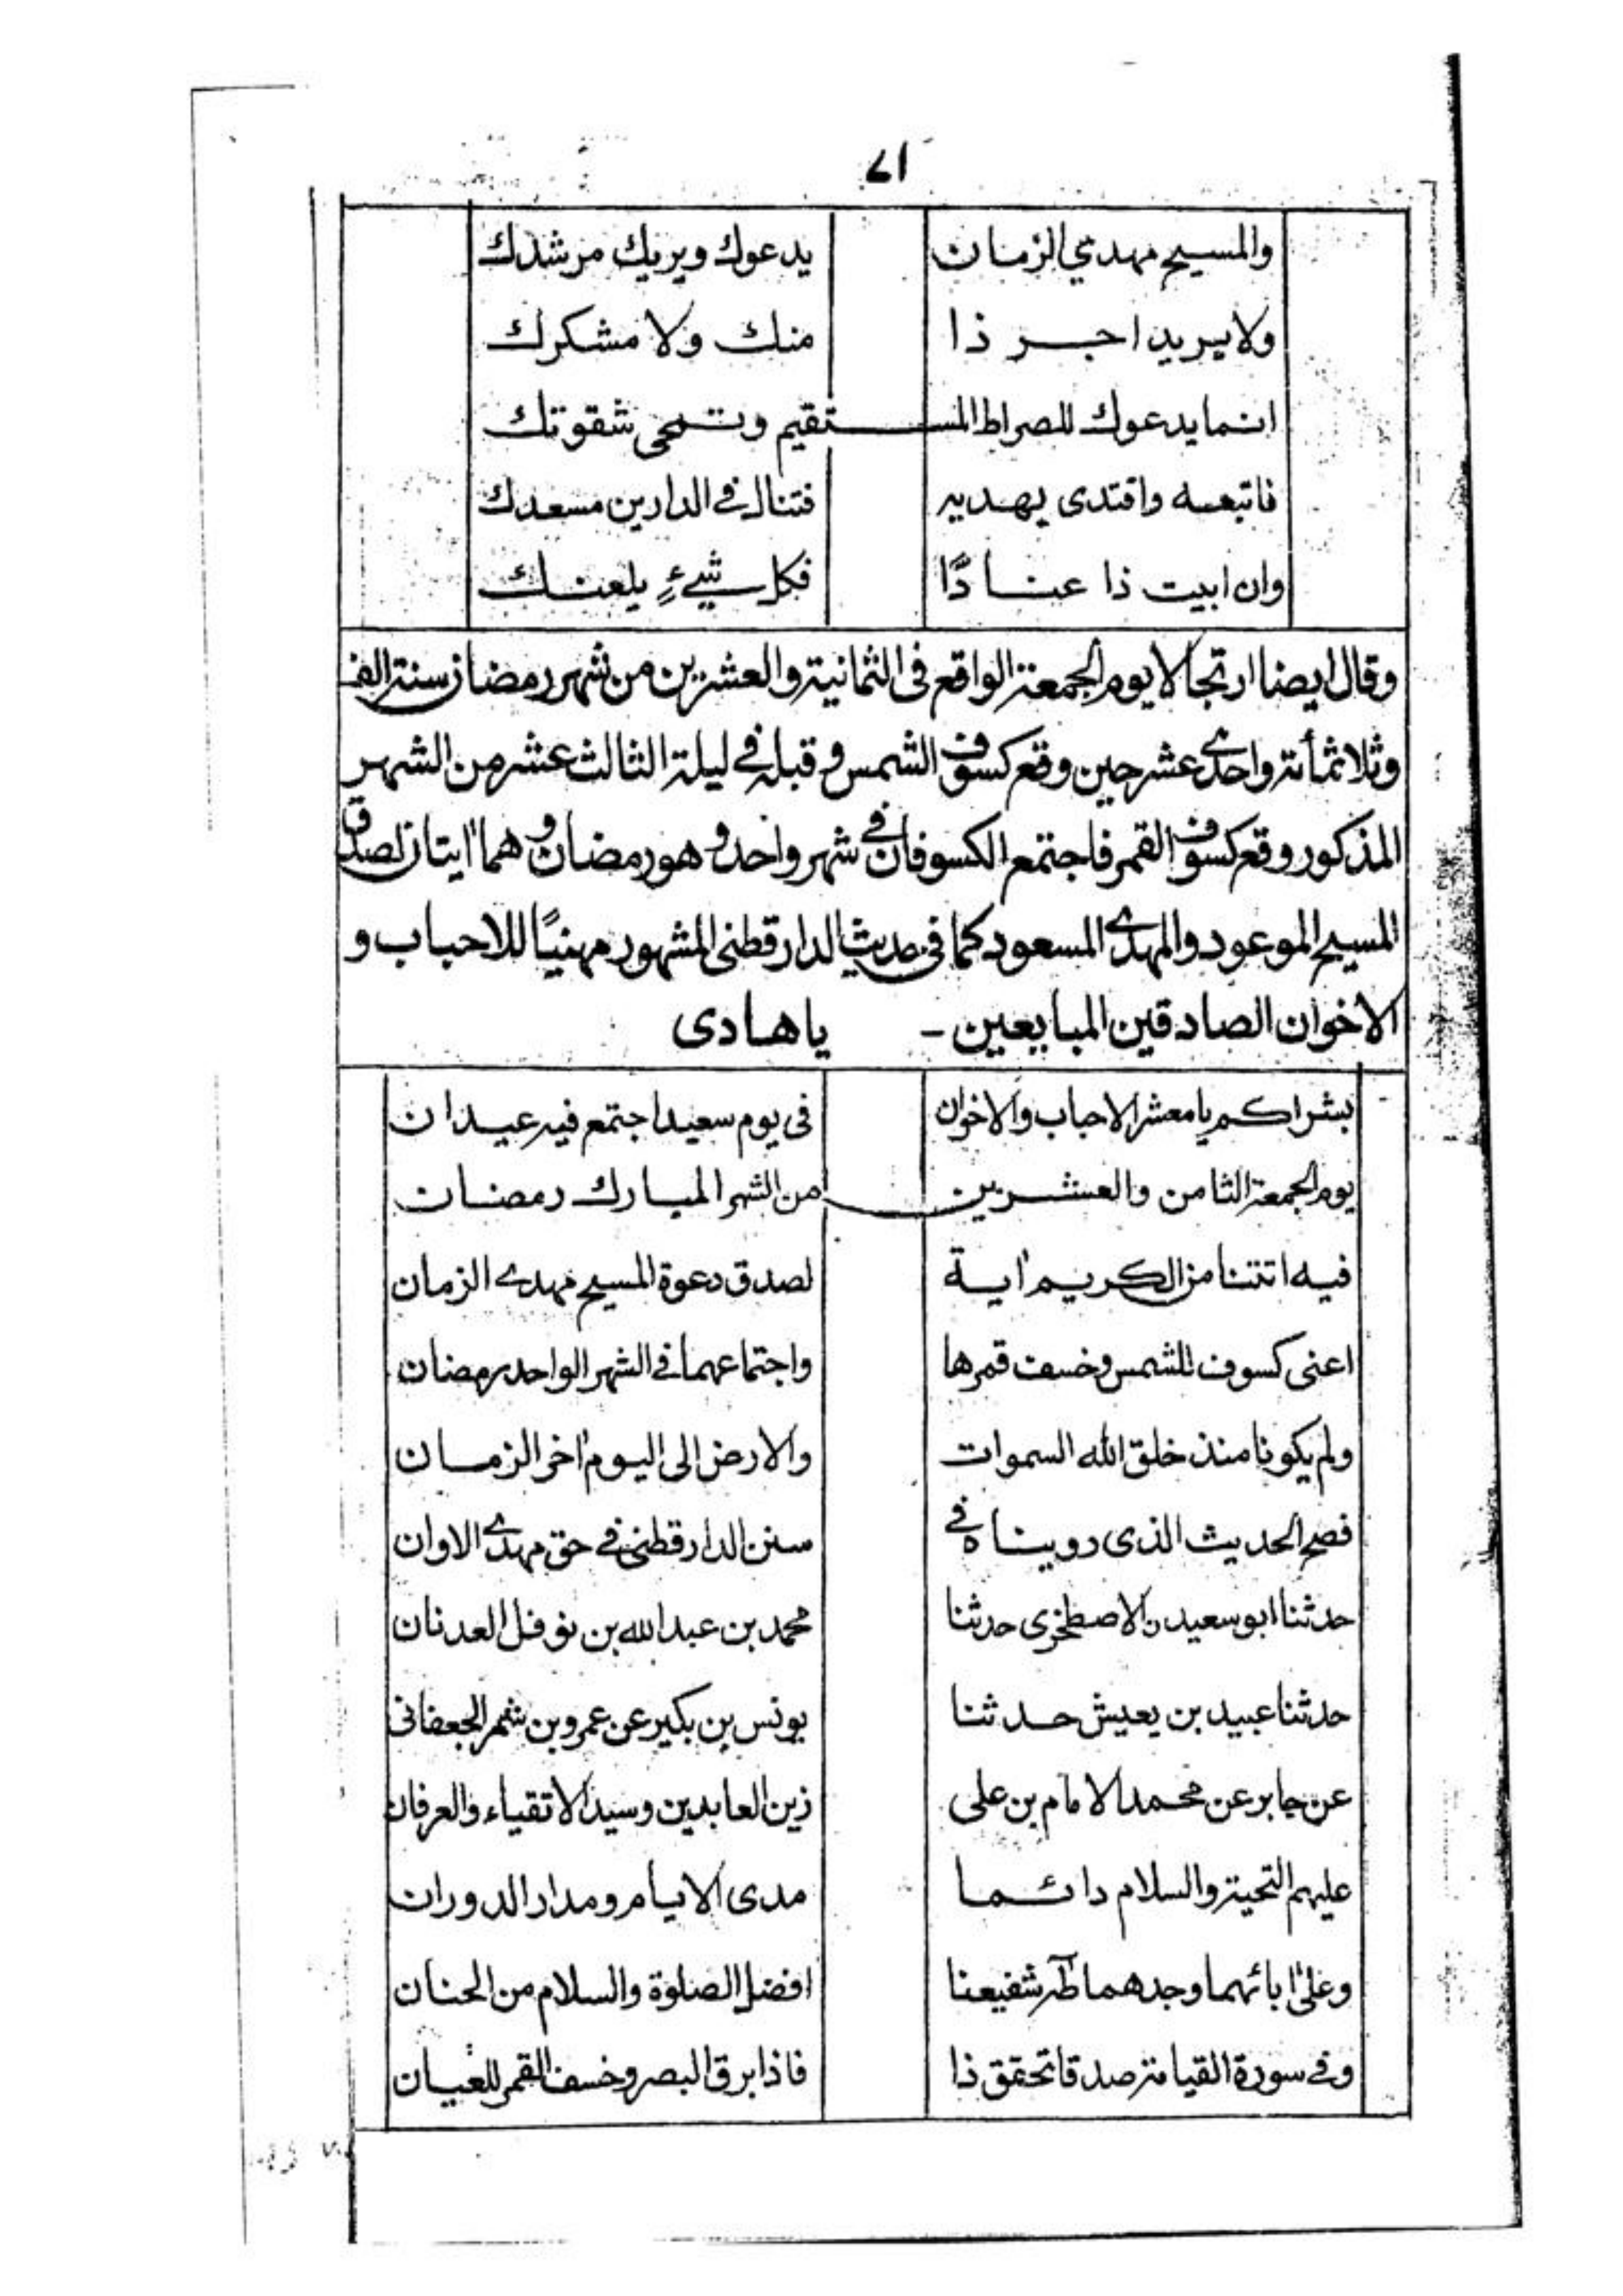 ٧١
والمسيح مهدي الزمان يدعوك ويريك مرشدك
ولا يريد اجر ذا منك ولا مشكرك
انما يدعوك للصراط المستقيم وتمحى شقوتك
فاتبعه واقتدى بهديه فتنال في الدارين مسعدك
وان ابيت ذا عنادًا فكل شيءٍ يلعنك
وقال ايضا ارتجالا يوم الجمعة الواقع فى الثمانية والعشرين من شهر رمضان سنة الف
وثلاثمأئة واحدى عشر حين وقع كسوف الشمس وقبله في ليلة الثالث عشر من الشهر
المذكور وقع كسوف القمر فاجتمع الكسوفان في شهر واحد وهو رمضان وهما اٰيتان لصدق
المسيح الموعود والمهدى المسعود كما فى حديث الدارقطنى المشهور مهنيًا للاحباب و
الاخوان الصادقين المبايعين - يا هادى
بشراكم يا معشر الاحباب والاخوان فى يوم سعيد اجتمع فيه عيدان
يوم الجمعة الثامن والعشرين من الشهر المبارك رمضان
فيه اتتنا من الكريم اٰية لصدق دعوة المسيح مهدى الزمان
اعنى كسوف للشمس وخسف قمرها واجتماعهما في الشهر الواحد رمضان
ولم يكونا منذ خلق الله السموات والارض الى اليوم اٰخر الزمان
فصح الحديث الذى رويناه في سنن الدارقطنى في حق مهدى الاوان
حدثنا ابو سعيدن الاصطخرى حدثنا محمد بن عبد الله بن نوفل العدنان
حدثنا عبيد بن يعيش حدثنا يونس بن بكير عن عمرو بن شمر الجعفانى
عن جابر عن محمد الامام بن على زين العابدين وسيد الاتقياء والعرفان
عليهم التحية والسلام دائما مدى الايام ومدار الدوران
وعلى اٰبائهما وجدهما طٰه شفيعنا افضل الصلوة والسلام من الحنان
وفي سورة القيامة صدقا تحقق ذا فاذا برق البصر وخسف القمر للعيان